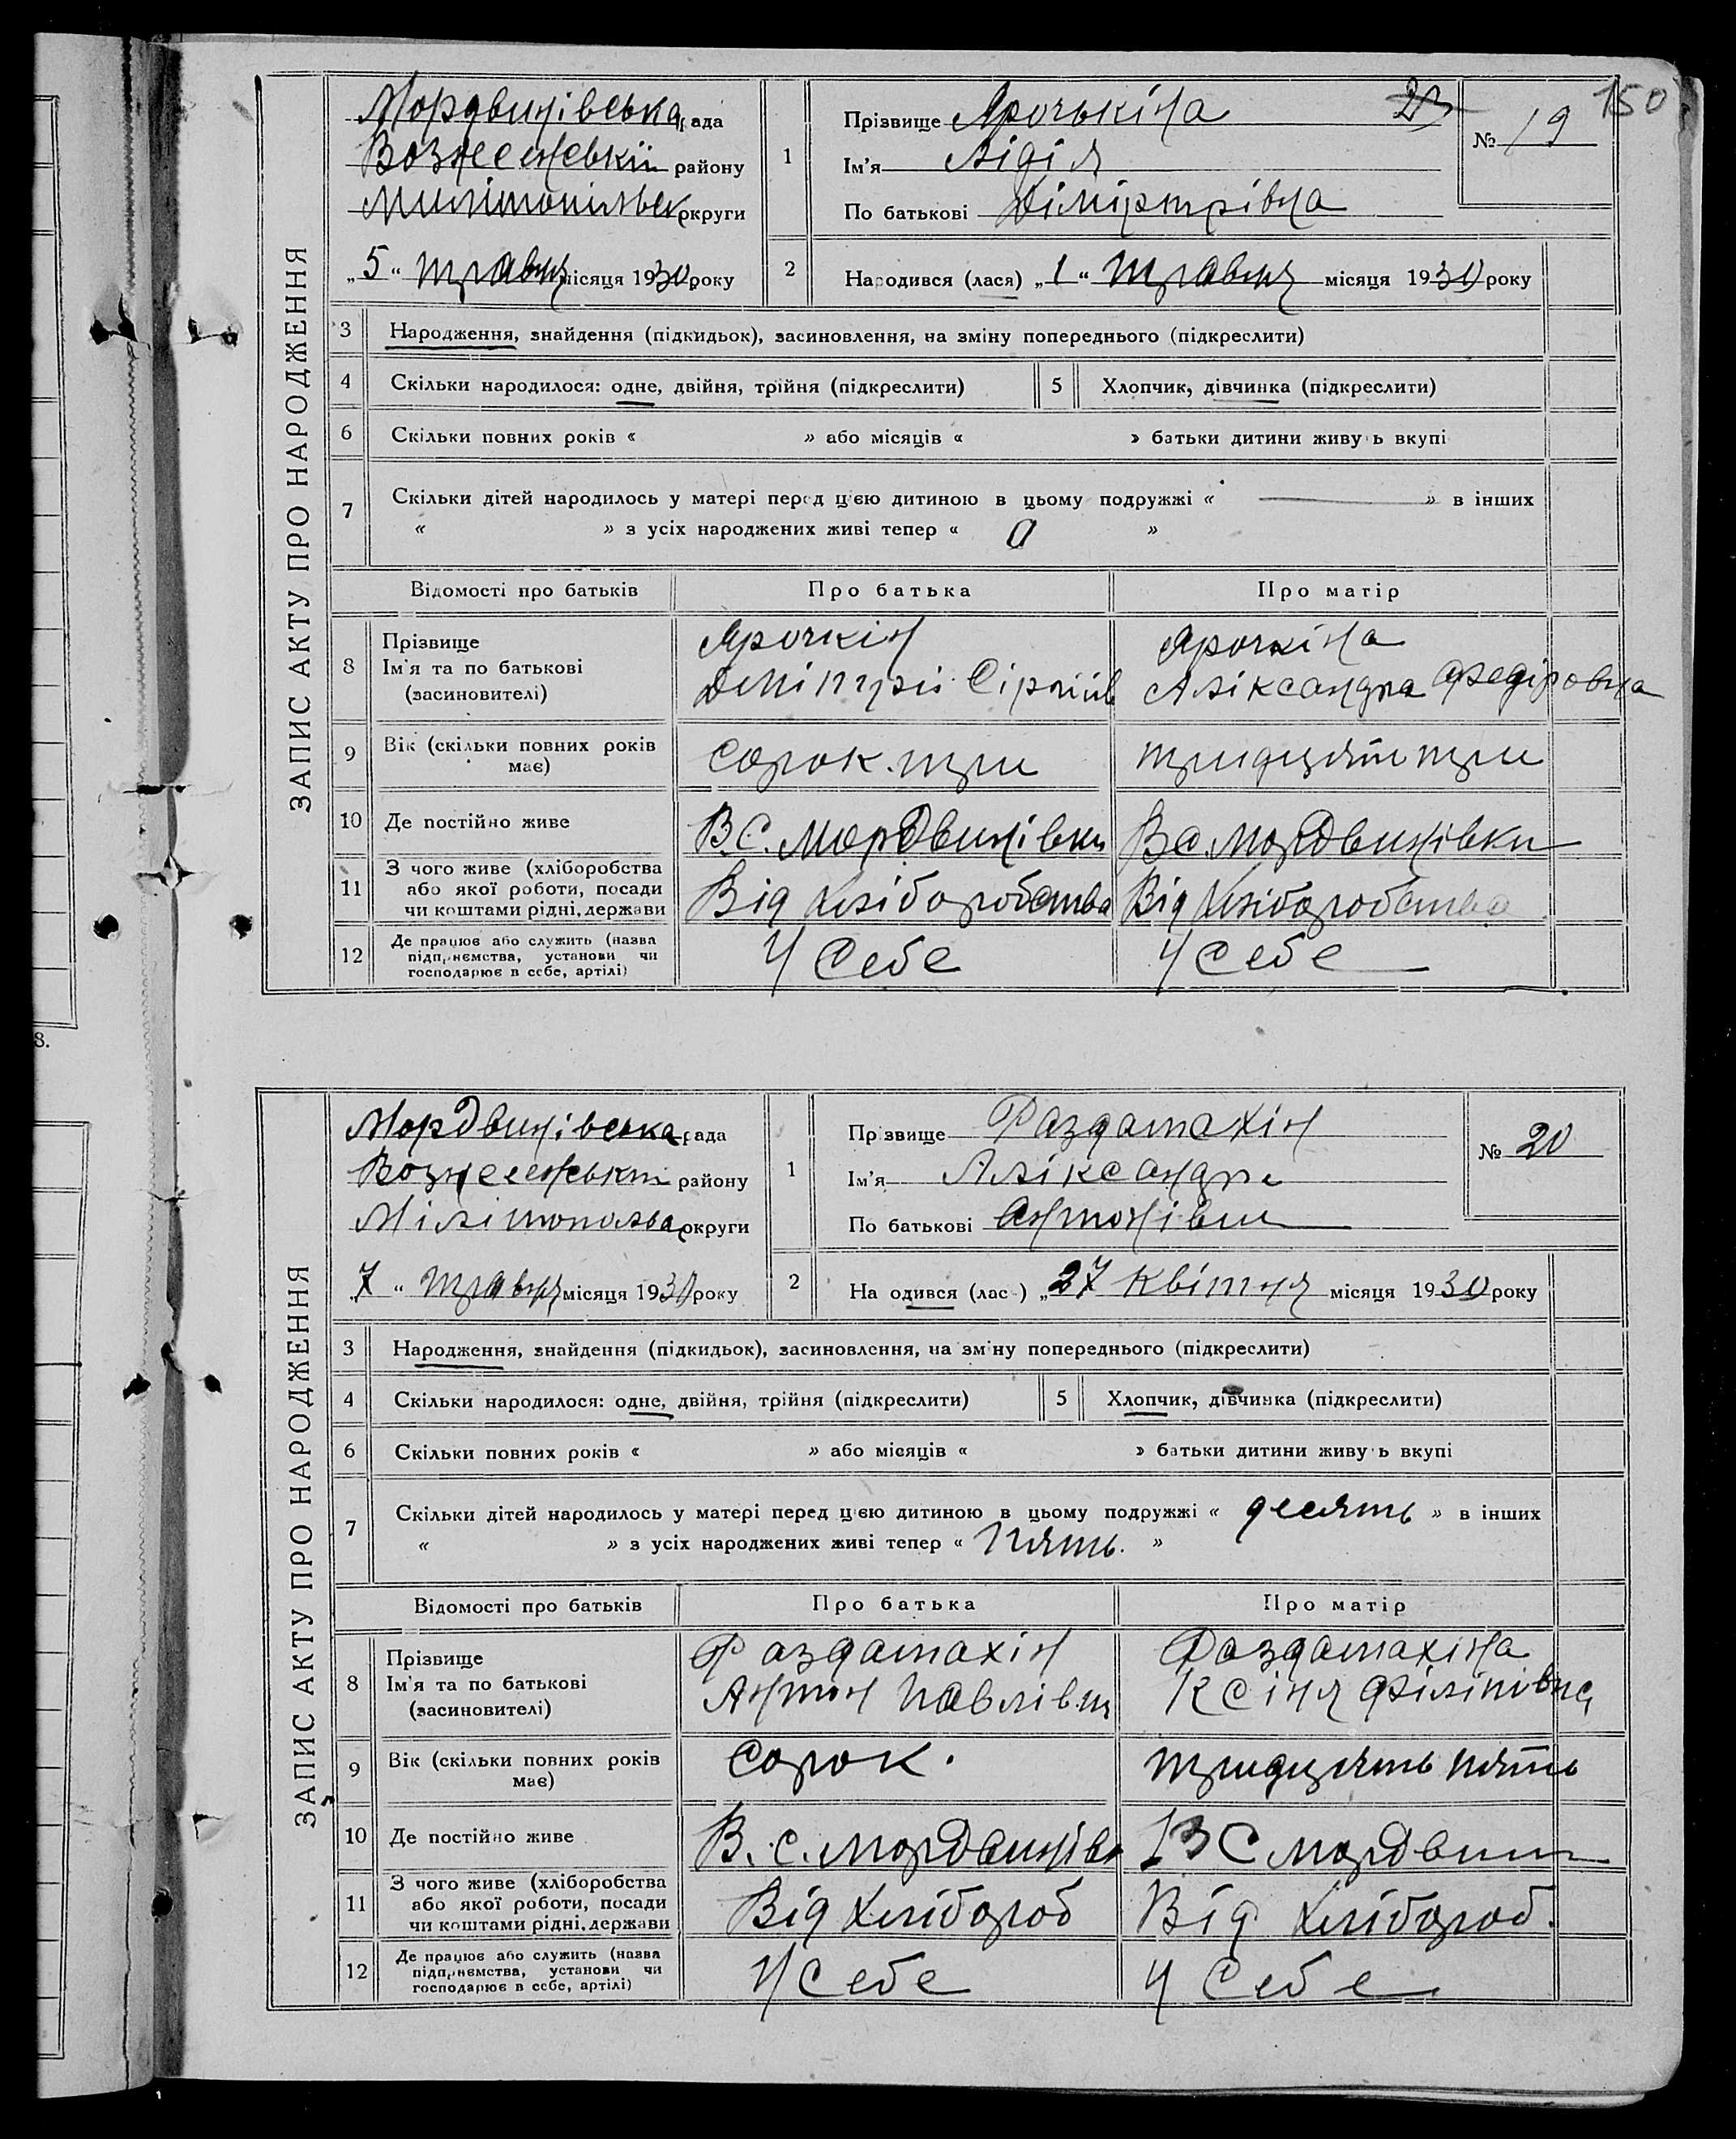 150
ЗАПИС АКТУ ПРО НАРОДЖЕННЯ
Мордвинівська рада
Вознесенський району
Милітопільськ округи
„5“ травня місяця 1930 року
1 Прізвище Ярочькіна
Ім'я Лідія
По батькові Діміртрівна
23
№ 19
2 Народився (лася) „1“ травня місяця 1930 року
3 Народження, знайдення (підкидьок), засиновлення, на зміну попереднього (підкреслити)
4 Скільки народилося: одне, двійня, трійня (підкреслити) 5 Хлопчик, дівчинка (підкреслити)
6 Скільки повних років « » або місяців « » батьки дитини живуть вкупі
7 Скільки дітей народилось у матері перед цією дитиною в цьому подружжі « — » в інших
« » з усіх народжених живі тепер « 0 »
Відомості про батьків Про батька Про матір
8 Прізвище
Ім'я та по батькові
(засиновителі)
Ярочкін
Дмітрій
Ярочкіна
Аліксандра Федіровна
9 Вік (скільки повних років
має)
Сорок три
тридцять три
10 Де постійно живе В.С. Мордвинівки В с. Мордвинівки
11 З чого живе (хліборобства
або якої роботи, посади
чи коштами рідні, держави
Від хліборобства Від хліборобства
12 Де працює або служить (назва
підприємства, установи чи
господарює в себе, артілі)
У Себе У Себе
8.
ЗАПИС АКТУ ПРО НАРОДЖЕННЯ
Мордвинівська рада
Вознесенський району
Мілітопольс округи
7 “ травня місяця 1930 року
1 Прізвище Фаздатахін
Ім'я Аліксандр
По батькові Антонівич
№ 20
2 Народився (лас ) „27 Квітня місяця 1930 року
3 Народження, знайдення (підкидьок), засиновлення, на зміну попереднього (підкреслити)
4 Скільки народилося: одне, двійня, трійня (підкреслити) 5 Хлопчик, дівчинка (підкреслити)
6 Скільки повних років « » або місяців « » батьки дитини живуть вкупі
7 Скільки дітей народилось у матері перед цією дитиною в цьому подружжі « десять » в інших
« » з усіх народжених живі тепер « Пять. »
Відомості про батьків Про батька Про матір
8 Прізвище
Ім'я та по батькові
(засиновителі)
Фаздатахін
Антон Павлівич
Фаздатахіна
Ксіня Філіпівна
9 Вік (скільки повних років
має)
Сорок.
тридцять пять
10 Де постійно живе В. с. Мордвинівк В С Мордвин
11 З чого живе (хліборобства
або якої роботи, посади
чи коштами рідні, держави
Від хлібороб Від хлібороб.
12 Де працює або служить (назва
підприємства, установи чи
господарює в себе, артілі)
У Себе У Себе